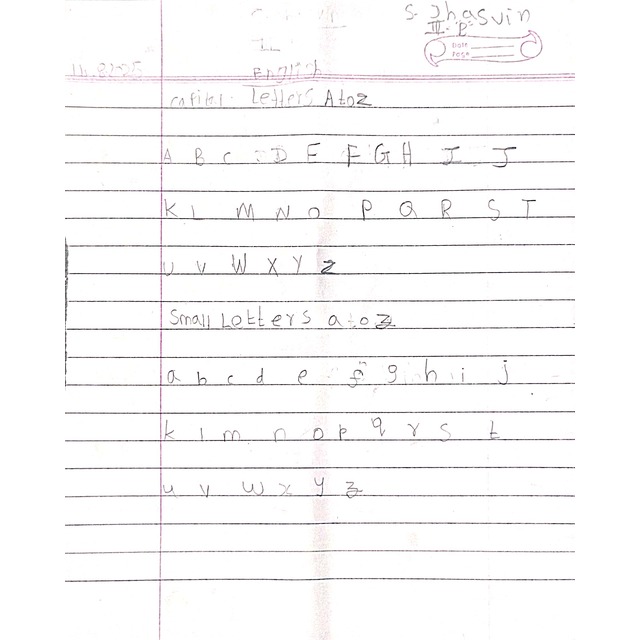 S. Jhasvin
III - P
DATE
PAGE
English
Capital Letters A to z
A B C D E F G H I J
K L M N O P Q R S T
U V W X Y Z
Small Lotters a to z
a b c d e f g h i j
k l m n o p q r s t
u v w x y z